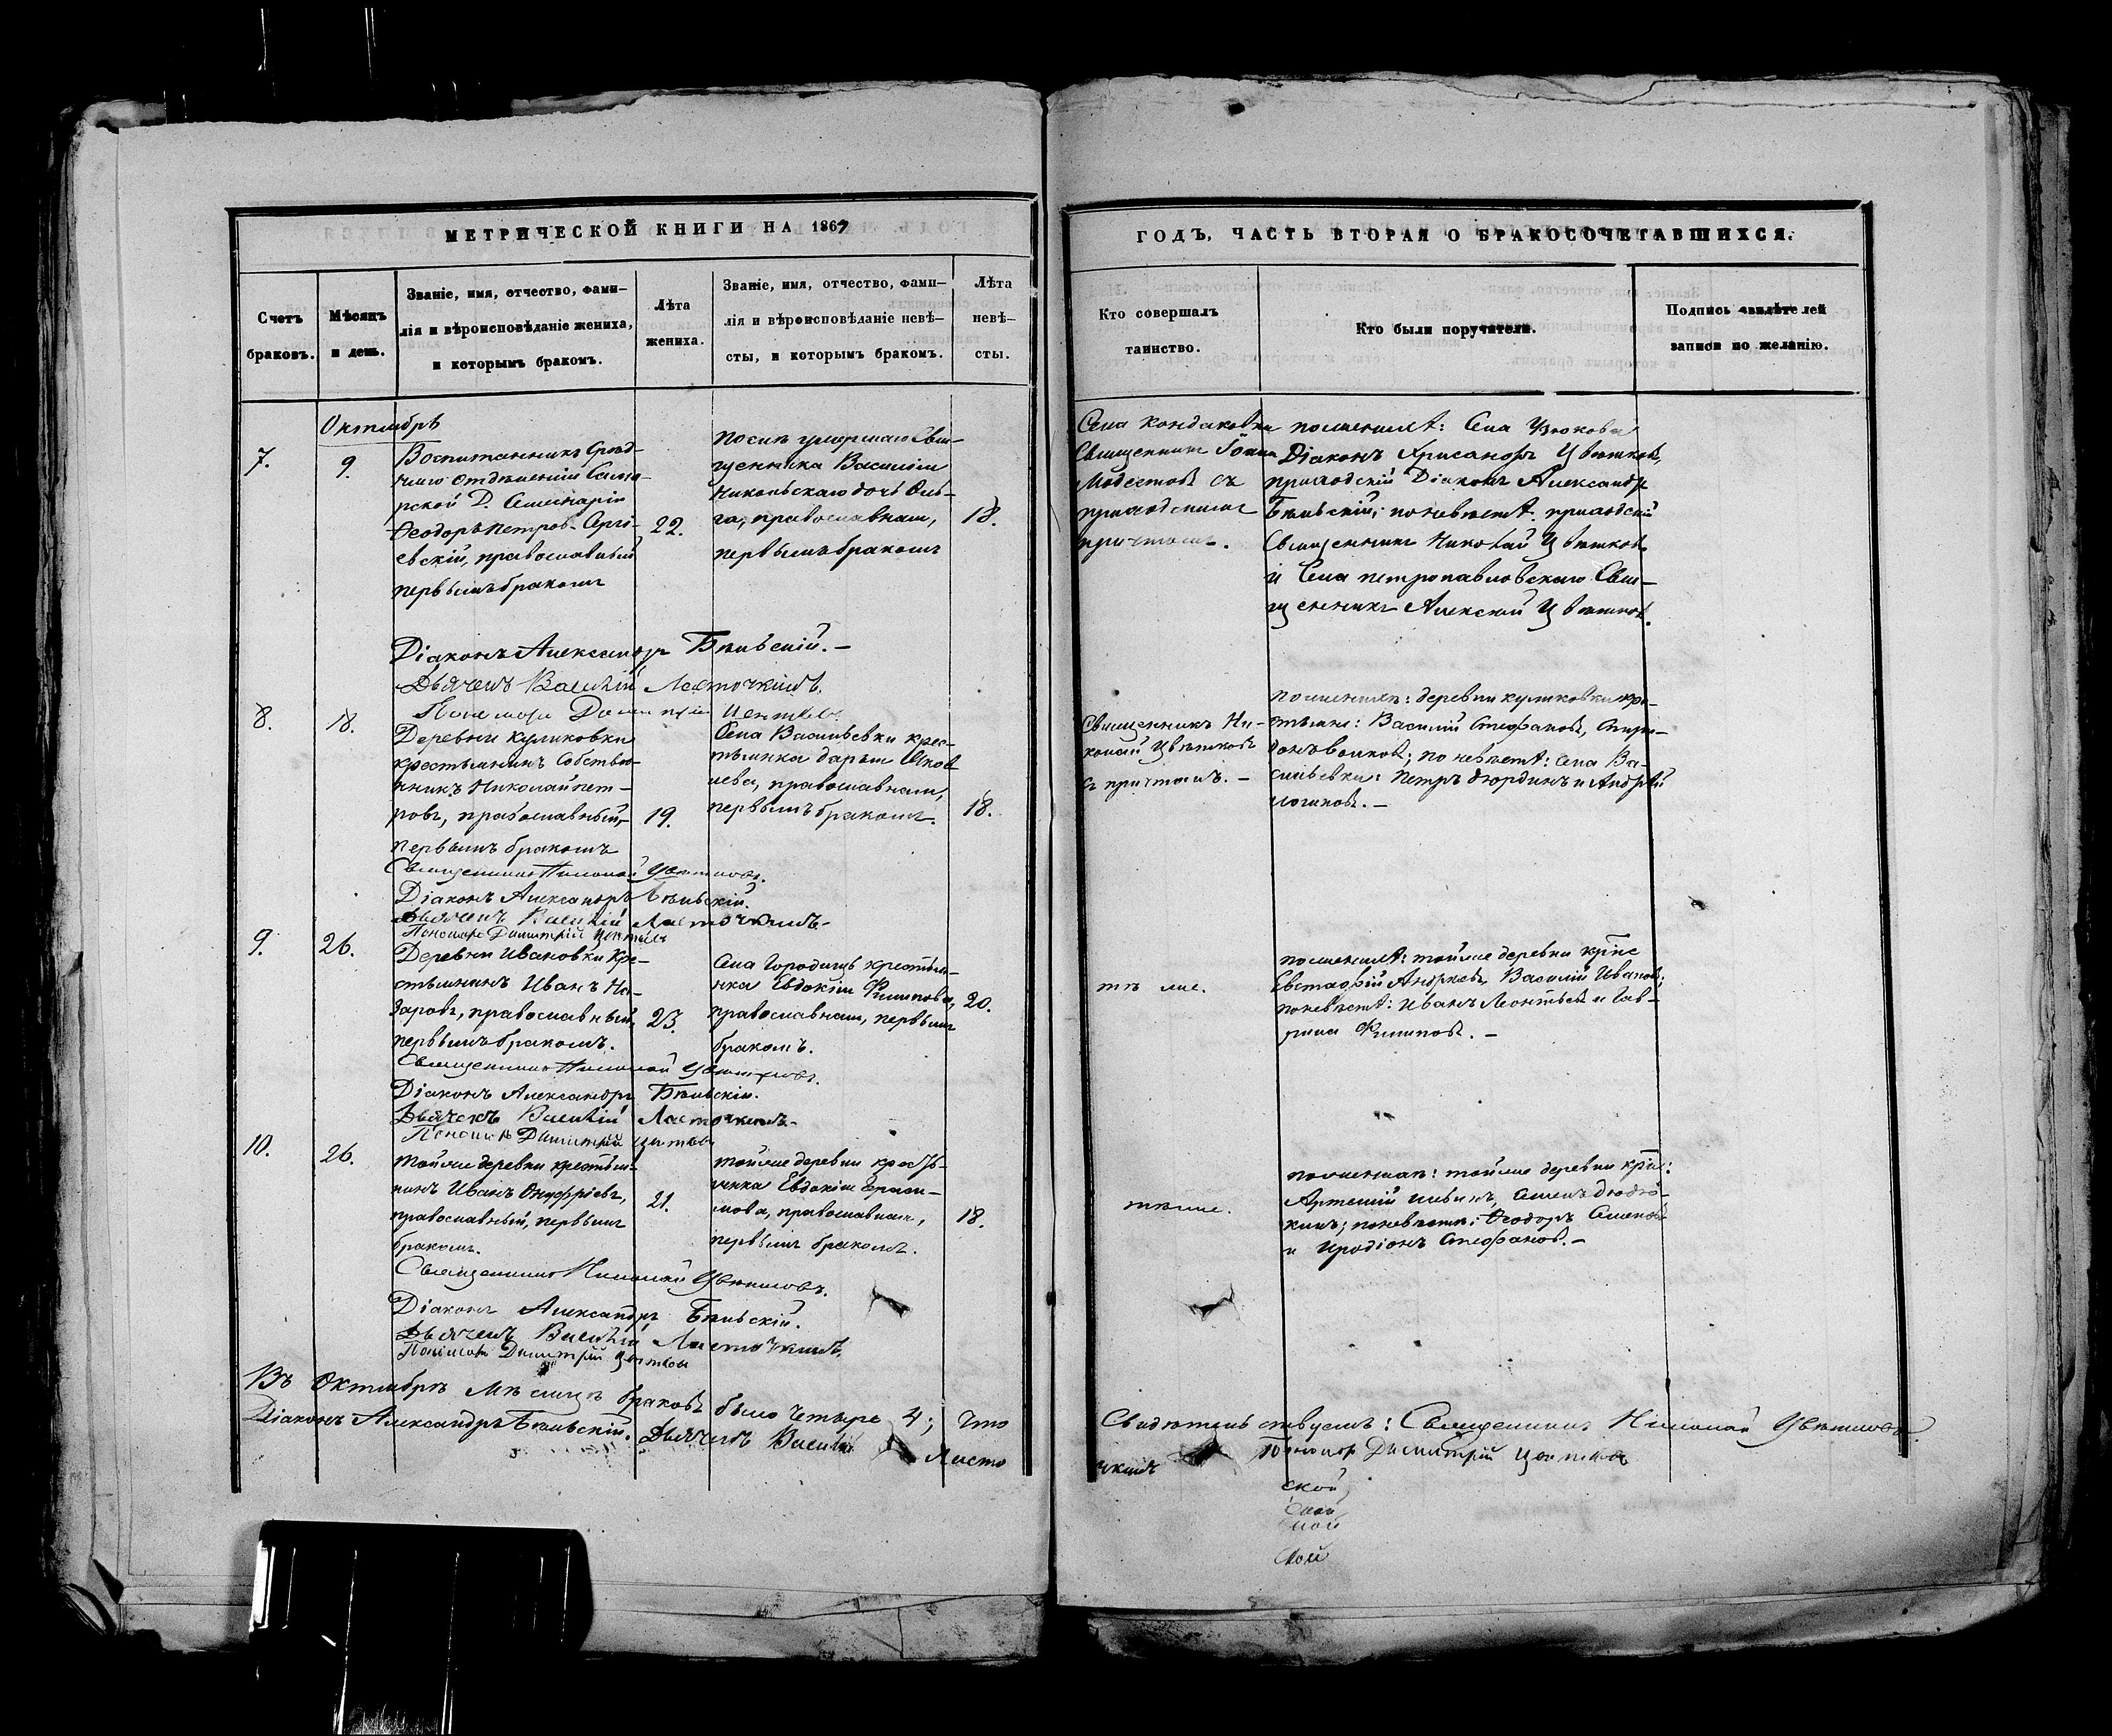 МЕТРИЧЕСКОЙ КНИГИ НА 1867
Счетъ
браковъ.
Мѣсяцъ
и день.
Званіе, имя, отчество, фами-
лія и вѣроисповѣданіе жениха,
и которымъ бракомъ.
Лѣта
жениха.
Званіе, имя, отчество, фами-
лія и вѣроисповѣданіе невѣ-
сты, и которымъ бракомъ.
Лѣта
невѣ-
сты.
Октябрь
7.
9.
Воспитанникъ Сред-
няго отдѣленія Сама-
рской Д. Семинаріи
Ѳеодоръ Петровъ Сергі-
евскій, православный
первымъ бракомъ
22.
умершаго Свя-
щенника Василія
Никольскаго дочь Оль-
га, православная,
первымъ бракомъ
18.
Діаконъ Александръ Бѣльскій.-
Дьячекъ Василій Ласточкинъ.
Пономарь Димитрій Цвѣтковъ
8.
18.
Деревни Куликовки
крестьянинъ Собствен-
никъ Николай Пет-
ровъ, православный,
первымъ бракомъ
19.
Села Васильевки крес-
тьянка Дарья
православная,
первымъ бракомъ.
18.
Священникъ Николай Цвѣтковъ.
Діаконъ Александръ Бѣльскій.
Дьячекъ Василій Ласточкинъ-
Пономарь Димитрій Цвѣтковъ
9.
26.
Деревни Ивановки Кре-
стьянинъ Иванъ На-
заровъ, православный,
первымъ бракомъ.
23.
Села Городищъ крестьян-
ка Евдокія Филипова,
православная, первымъ
бракомъ.
20.
Священникъ Николай Цвѣтковъ.
Діаконъ Александръ Бѣльскій.
Дьячекъ Василій Ласточкинъ-
Пономарь Димитрій Цвѣтковъ
10.
26.
Тойже деревни крестьян-
инъ Иванъ Онуфріевъ,
православный, первымъ
бракомъ.
21.
Тойже деревни кресть-
янка Евдокія Гераси-
мова, православная,
первымъ бракомъ.
18.
Священникъ Николай Цвѣтковъ.
Діаконъ Александръ Бѣльскій.
Дьячекъ Василій Ласточкинъ.
Пономарь Димитрій Цвѣтковъ
Въ Октябрѣ мѣсяцѣ браковъ было четыре 4; что
Діаконъ Александръ Бѣльскій. Дьячекъ Василій Ласто
ГОДЪ, ЧАСТЬ ВТОРАЯ О БРАКОСОЧЕТАВШИХСЯ.
Кто совершалъ
таинство.
Кто были поручители.
Подпись свидѣтелей
записи по желанію.
Села Кондаковки
Священникъ Іоаннъ
Модестовъ съ
приходскимъ
причтомъ.
по женихѣ: Села Узюкова
Діаконъ Хрисанфъ Цвѣтковъ,
приходскій Діаконъ Александръ
Бѣльскій; по невѣстѣ: приходскій
Священникъ Николай Цвѣтковъ
и Села Петропавловскаго Свя-
щенникъ Алексѣй Цвѣтковъ.
Священникъ Ни-
колай Цвѣтковъ
съ причтомъ. -
по женихѣ: деревни Куликовки кре-
стьяне: Василій Стефановъ, Спири-
донъ Волковъ; по невѣстѣ: села Ва-
сильевки: Петръ Дюрдинъ и Андрей
Логиновъ. -
тѣ же.
по женихѣ: тойже деревни кр̃не
Евстафій Андреевъ, Василій Ивановъ;
по невѣстѣ: Иванъ Леонтьевъ и Гав-
рила Филиповъ. -
тѣ же.
по женихѣ: тойже деревни кр̃не:
Артемій Ильинъ, Семенъ Дюдю-
кинъ; по невѣстѣ: Ѳеодоръ Семеновъ
и Иродіонъ Стефановъ. -
Свидѣтельствуемъ: Священникъ Николай Цвѣтковъ.
чкинъ Пономарь Димитрій Цвѣтковъ
ской